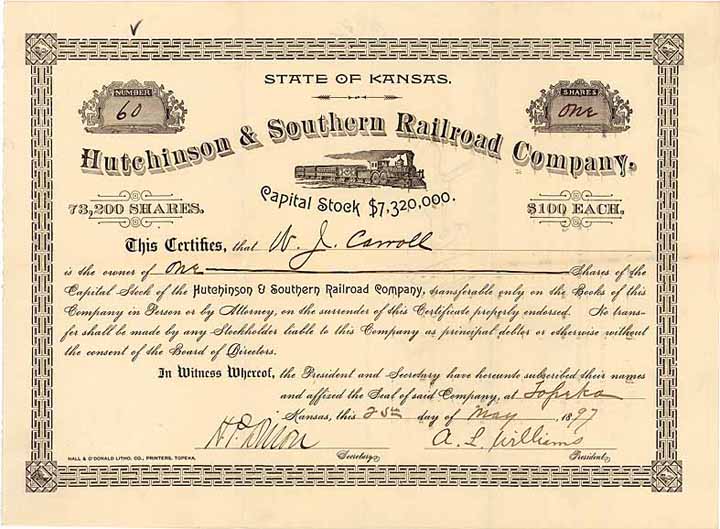 STATE OF KANSAS.
NUMBER
60
SHARES
One
Hutchinson & Southern Railroad Company.
73,200 SHARES.
Capital Stock $7,320,000.
$100 EACH.
This Certifies, that W. J. Carroll
is the owner of One Shares of the
Capital Stock of the Hutchinson & Southern Railroad Company, transferable only on the Books of this
Company in Person or by Attorney, on the surrender of this Certificate properly endorsed. No trans-
fer shall be made by any Stockholder liable to this Company as principal debtor or otherwise without
the consent of the Board of Directors.
In Witness Whereof, the President and Secretary have hereunto subscribed their names
and affixed the Seal of said Company, at Topeka
Kansas, this 25th day of May 1897
A. L. Williams
Secretary
President
HALL & O'DONALD LITHO. CO., PRINTERS, TOPEKA.